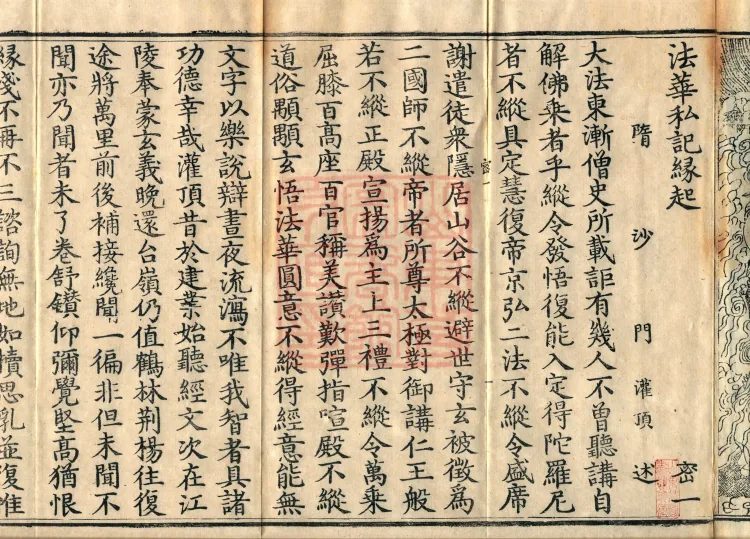 法華私記縁起 密一
隋沙門灌頂述
大法東漸僧史所載詎有幾人不曾聽講自
解佛乗者乎縱令發悟復能入定得陀羅尼
者不縱具定慧復帝京弘二法不縱令盛席
密一
謝遣徒衆隱居山谷不縱避世守玄被徵爲
二國師不縱帝者所尊太極對御講仁王般
若不縱正殿宣揚爲王上三禮不縱令萬乗
屈膝百高座百官稱美讚歎彈指喧殿不縱
道俗顒顒玄悟法華圓意不縱得經意能無
文字以樂說辯晝夜流瀉不唯我智者具諸
功德幸哉灌頂昔於建業始聽經文次在江
陵奉蒙玄義晚還台嶺仍值鶴林荆楊往復
途將萬里前後補接纔聞一徧非但未聞不
聞亦乃聞者未了卷舒鑚仰彌覺堅高猶恨
縁淺不再不三諮詢無地如犢思乳並復惟